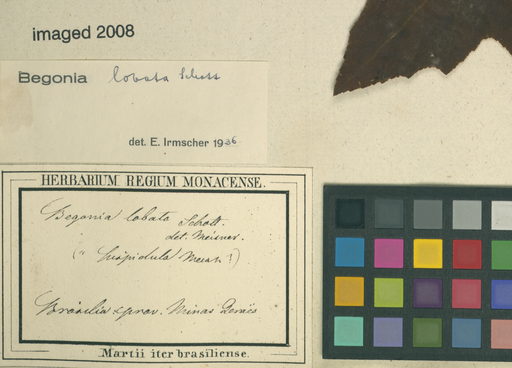 imaged 2008
Begonia lobata Schott
det. E. Irmscher 1936
HERBARIUM REGIUM MONACENSE.
Begonia lobata Schott.
det. Meisner.
(" hispidula Meisn ?)
Brasilia prov. Minas Geraës
Martii iter brasiliense.